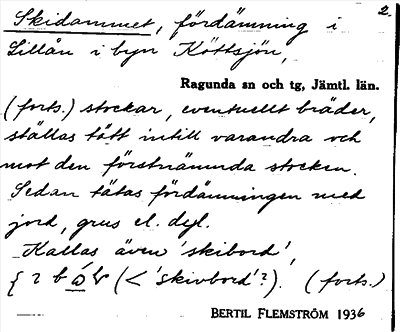 2.
Skidammet, fördämning i
Lillån i byn Köttsjön,
Ragunda sn och tg, Jämtl. län.
(forts.) stockar, eventuellt bräder,
ställas tätt intill varandra och
mot den förstnämnda stocken.
Sedan tätas fördämningen med
jord, grus el. dyl.
Kallas även 'skibord',
(< 'skivbord'?). (forts.)
BERTIL FLEMSTRÖM 1936